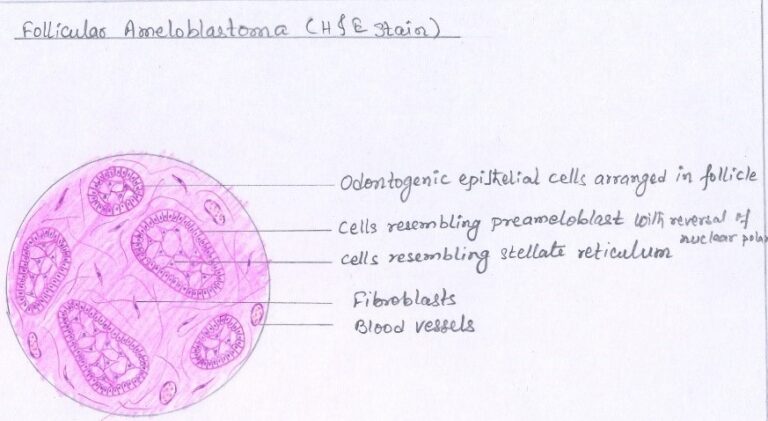 Follicular Ameloblastoma (H&E Stain)
Odontogenic epithelial cells arranged in follicle
Cells resembling preameloblast with reversal of
nuclear polar
cells resembling stellate reticulum
Fibroblasts
Blood vessels